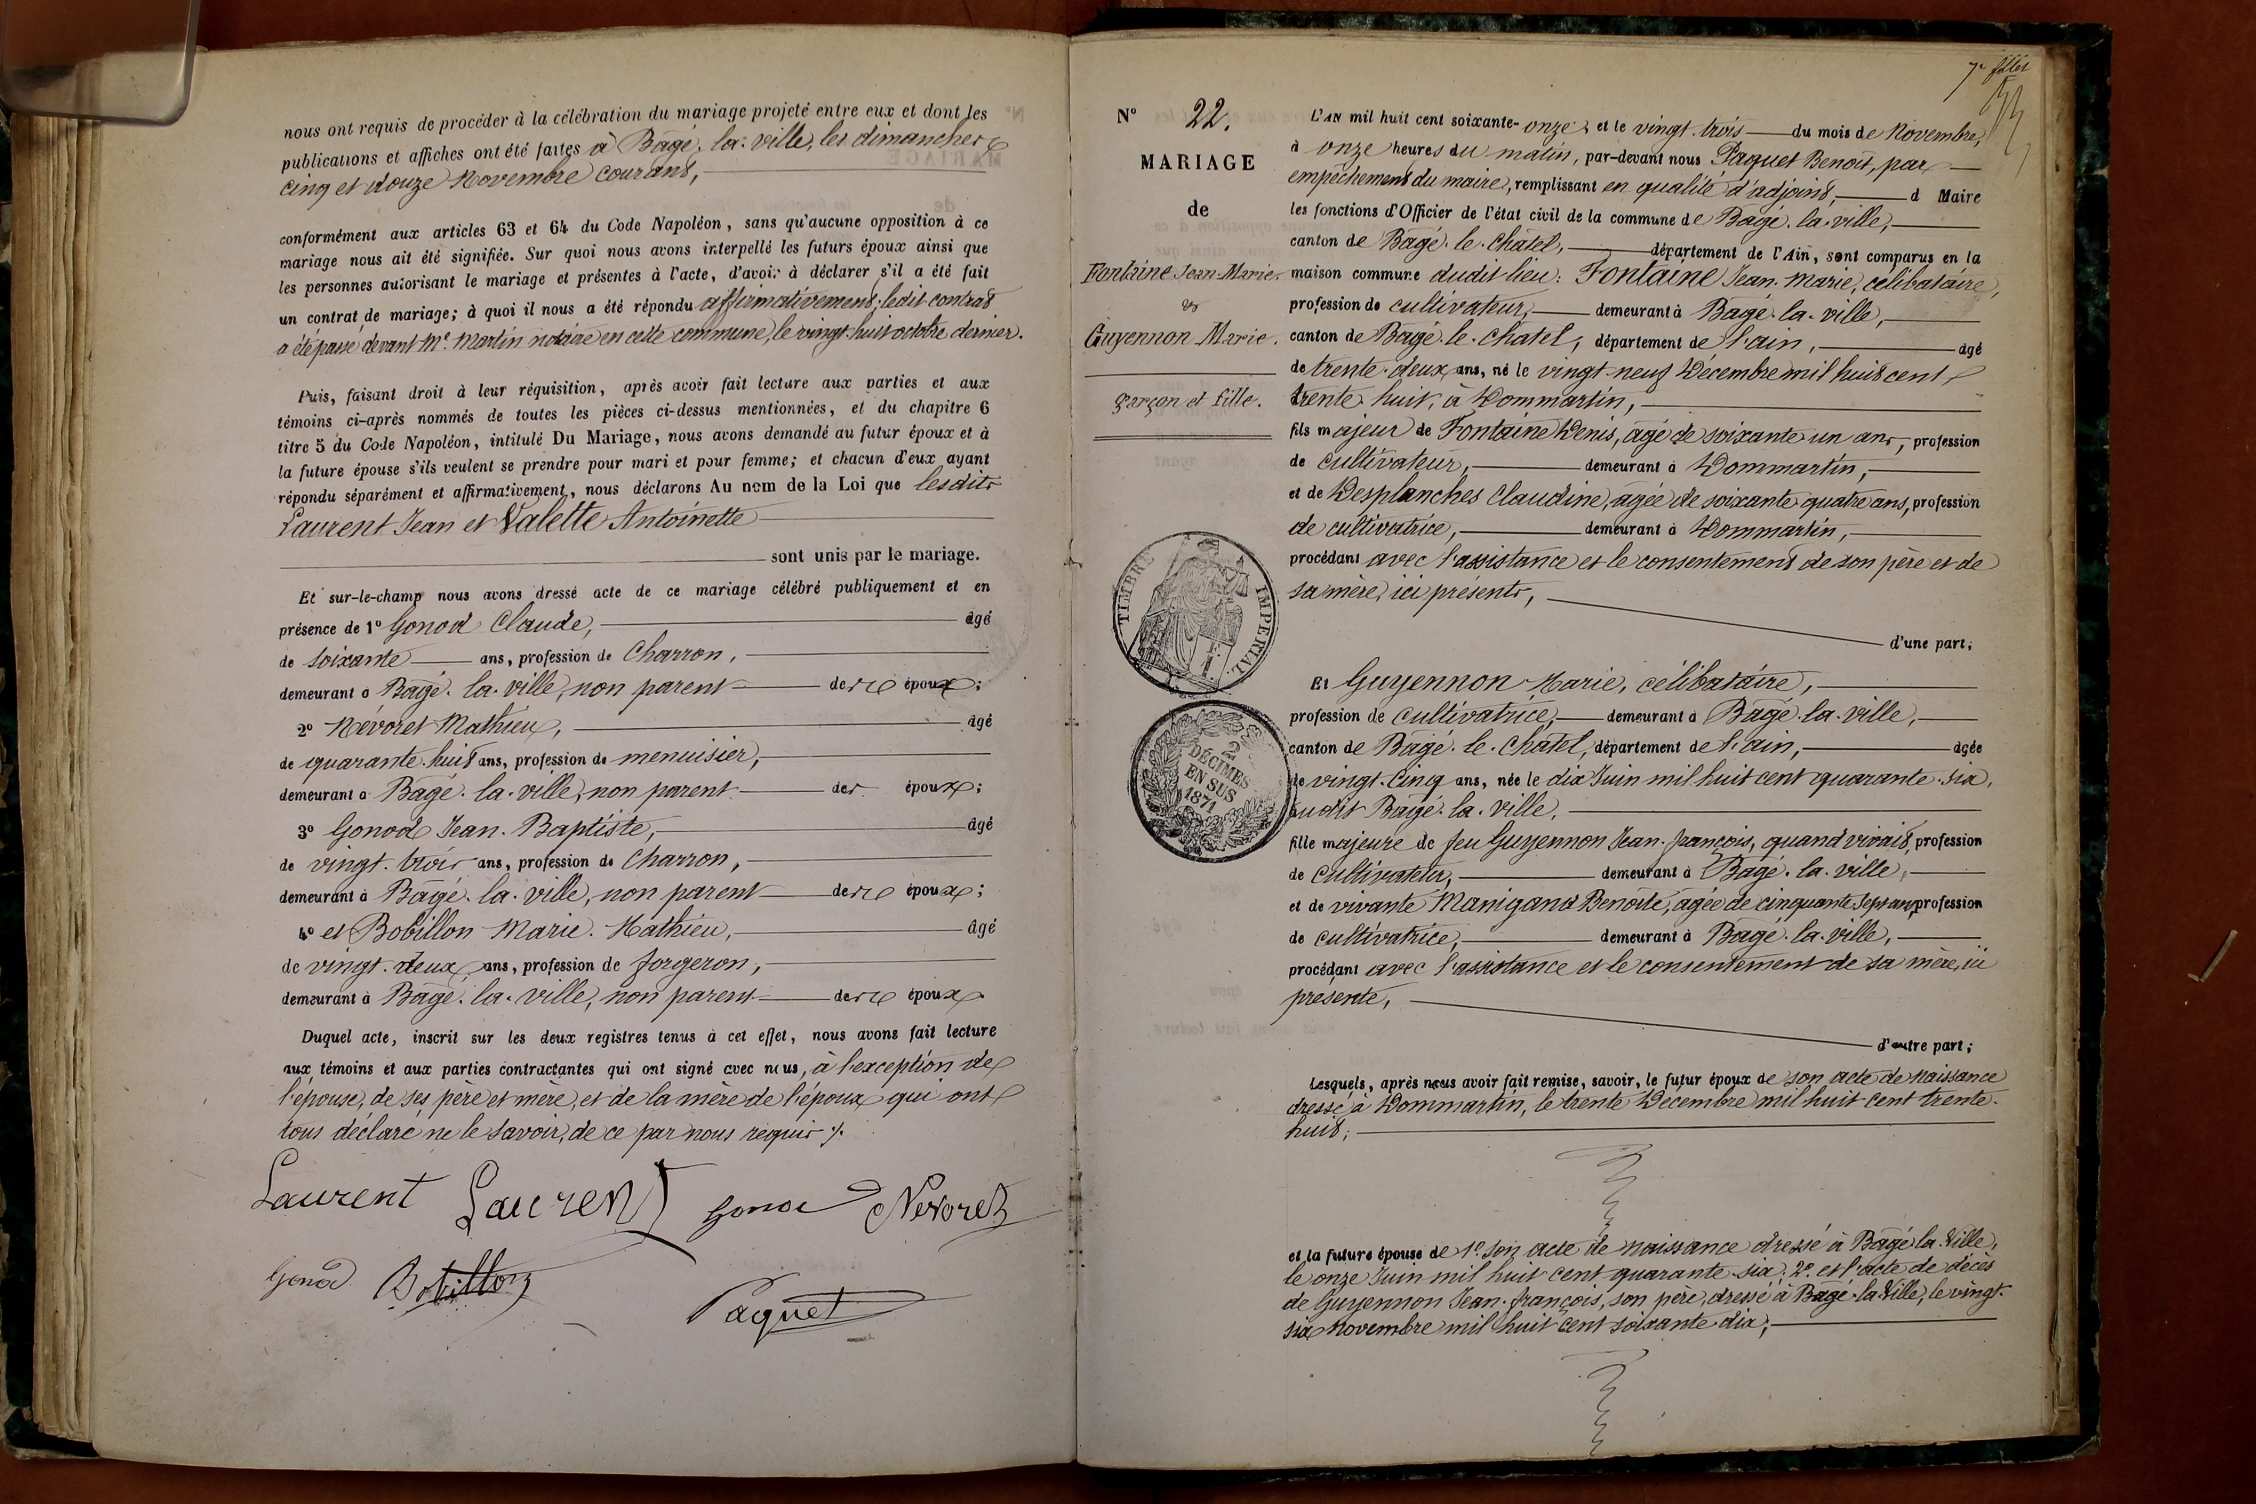 nous ont requis de procéder à la célébration du mariage projeté entre eux et dont les
publications et affiches ont été faites à Bâgé-la-ville, les dimanches
cinq et douze Novembre courant,
conformément aux articles 63 et 64 du Code Napoléon, sans qu'aucune opposition à ce
mariage nous ait été signifiée. Sur quoi nous avons interpellé les futurs époux ainsi que
les personnes autorisant le mariage et présentes à l'acte, d'avoir à déclarer s'il a été fait
un contrat de mariage; à quoi il nous a été répondu affirmativement; ledit contrat
a été passé devant Me. Martin notaire en cette commune, le vingt-huit octobre dernier.
Puis, faisant droit à leur réquisition, après avoir fait lecture aux parties et aux
témoins ci-après nommés de toutes les pièces ci-dessus mentionnées, et du chapitre 6
titre 5 du Code Napoléon, intitulé Du Mariage, nous avons demandé au futur époux et à
la future épouse s'ils veulent se prendre pour mari et pour femme; et chacun d'eux ayant
répondu séparément et affirmativement, nous déclarons Au nom de la Loi que lesdits
Laurent Jean et Valette Antoinette
sont unis par le mariage.
Et sur-le-champ nous avons dressé acte de ce mariage célébré publiquement et en
présence de 1º Gonod Claude, âgé
de soixante ans, profession de Charron,
demeurant à Bâgé-la-ville, non parent des époux;
2º Névoret Mathieu, âgé
de quarante-huit ans, profession de menuisier,
demeurant à Bâgé-la-ville, non parent des époux;
3º Gonod Jean-Baptiste, âgé
de vingt-trois ans, profession de Charron,
demeurant à Bâgé-la-ville, non parent des époux;
4º et Bobillon Marie-Mathieu, âgé
de vingt-deux ans, profession de forgeron,
demeurant à Bâgé-la-ville, non parent des époux.
Duquel acte, inscrit sur les deux registres tenus à cet effet, nous avons fait lecture
aux témoins et aux parties contractantes qui ont signé avec nous, à l'exception de
l'épouse, de ses père et mère, et de la mère de l'époux qui ont
tous déclaré ne le savoir, de ce par nous requis ./.
Laurent Laurent Gonod Nevoret
Gonod Bobillon
Paquet
7e fillet
Nº 22.
MARIAGE
de
Fontaine Jean-Marie,
&
Guyennon Marie.
garçon et fille.
TIMBRE IMPERIAL
1 F.
2
DÉCIMES
EN SUS
1871
L'AN mil huit cent soixante-onze et le vingt-trois du mois de Novembre,
à onze heures du matin, par-devant nous Paquet Benoît, par
empêchement du maire, remplissant en qualité d'adjoint, d Maire
les fonctions d'Officier de l'état civil de la commune de Bâgé-la-ville,
canton de Bâgé-le-Châtel, département de l'Ain, sont comparus en la
maison commune dudit lieu: Fontaine Jean-Marie, célibataire,
profession de cultivateur, demeurant à Bâgé-la-ville,
canton de Bâgé-le-Chatel, département de l'ain, âgé
de trente-deux ans, né le vingt-neuf Décembre mil huit cent
trente-huit, à Dommartin,
fils majeur de Fontaine Denis, âgé de soixante un ans, profession
de cultivateur, demeurant à Dommartin,
et de Desplanches Claudine, âgée de soixante quatre ans, profession
de cultivatrice, demeurant à Dommartin,
procédant avec l'assistance et le consentement de son père et de
sa mère, ici présents,
d'une part;
Et Guyennon Marie, célibataire,
profession de cultivatrice, demeurant à Bâgé-la-ville,
canton de Bâgé-le-Chatel, département de l'ain, âgée
de vingt-cinq ans, née le dix Juin mil huit cent quarante-six,
audit Bâgé-la-ville,
fille majeure de feu Guyennon Jean-françois, quand vivait, profession
de cultivateur, demeurant à Bâgé-la-ville,
et de vivante Manigand Benoîte, âgée de cinquante sept ans, profession
de cultivatrice, demeurant à Bâgé-la-ville,
procédant avec l'assistance et le consentement de sa mère, ici
présente,
d'autre part;
Lesquels, après nous avoir fait remise, savoir, le futur époux de son acte de naissance
dressé à Dommartin, le trente Décembre mil huit cent trente-
huit;
et la future épouse de 1º son acte de naissance dressé à Bâgé la-Ville,
le onze Juin mil huit cent quarante-six; 2º et l'acte de décès
de Guyennon Jean-françois, son père, dressé à Bâgé-la-Ville, le vingt-
six novembre mil huit cent soixante-dix;